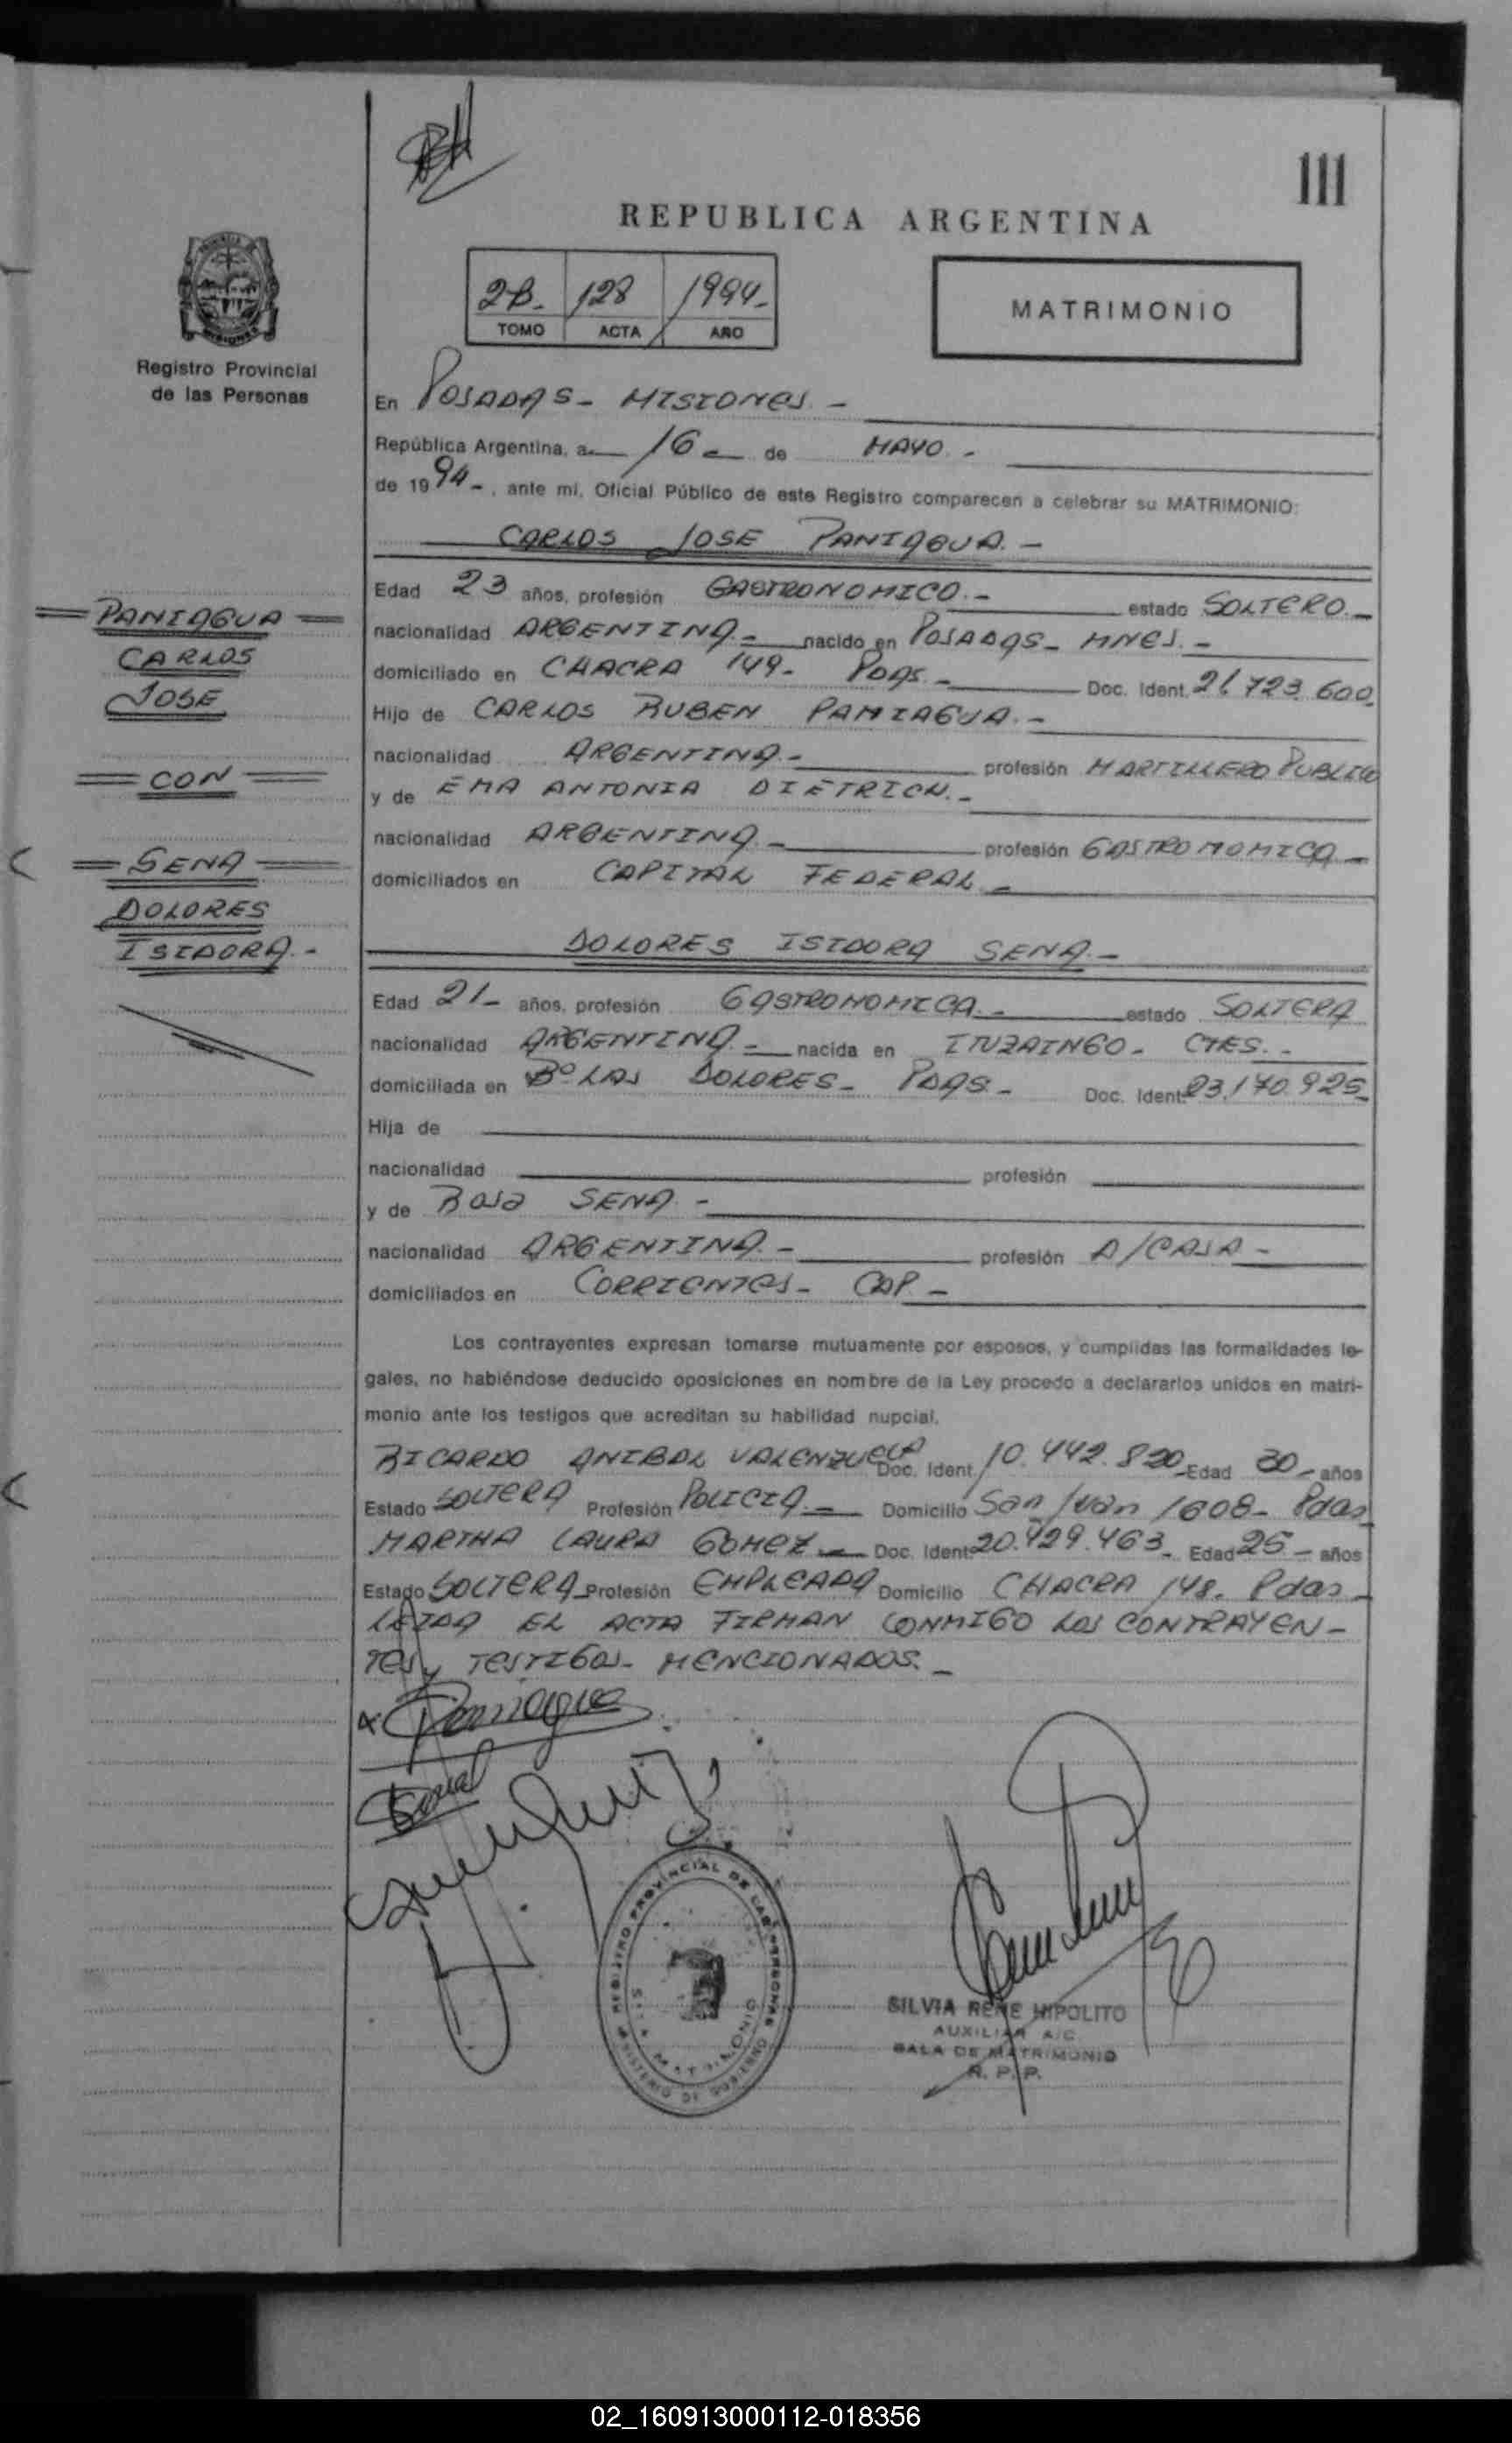 111
REPUBLICA ARGENTINA
2B- 128 1994-
TOMO ACTA AÑO
MATRIMONIO
Registro Provincial
de las Personas
En POSADAS- MISIONES -
República Argentina, a 16 - de MAYO. -
de 1994-, ante mí, Oficial Público de este Registro comparecen a celebrar su MATRIMONIO:
CARLOS JOSE PANIAGUA. -
Edad 23 años, profesión GASTRONOMICO. - estado SOLTERO. -
nacionalidad ARGENTINA. - nacido en POSADAS- MNES. -
domiciliado en CHACRA 149- PDAS. - Doc. Ident. 21.723.600-
Hijo de CARLOS RUBEN PANIAGUA. -
nacionalidad ARGENTINA. - profesión MARTILLERO PUBLICO
y de EMA ANTONIA DIETRICH. -
nacionalidad ARGENTINA. - profesión GASTRONOMICA -
domiciliados en CAPITAL FEDERAL -
PANIAGUA
CARLOS
JOSE
CON
SENA
DOLORES
ISIDORA. -
DOLORES ISIDORA SENA. -
Edad 21- años, profesión GASTRONOMICA. - estado SOLTERA
nacionalidad ARGENTINA. - nacida en ITUZAINGO- CTES. -
domiciliada en Bº LAS DOLORES- PDAS. - Doc. Ident. 23.170.925-
Hija de
nacionalidad profesión
y de ROSA SENA -
nacionalidad ARGENTINA. - profesión A/CASA -
domiciliados en CORRIENTES- CAP. -
Los contrayentes expresan tomarse mutuamente por esposos, y cumplidas las formalidades le-
gales, no habiéndose deducido oposiciones en nombre de la Ley procedo a declararlos unidos en matri-
monio ante los testigos que acreditan su habilidad nupcial.
RICARDO ANIBAL VALENZUELA Doc. Ident. 10.442.820 Edad 30- años
Estado SOLTERA Profesión POLICIA. - Domicilio San Juan 1608- Pdas
MARTHA LAURA GOMEZ - Doc. Ident. 20.429.463- Edad 25- años
Estado SOLTERA Profesión EMPLEADA Domicilio CHACRA 148. Pdas-
LEIDA EL ACTA FIRMAN CONMIGO LOS CONTRAYEN-
TES y TESTIGOS- MENCIONADOS. -
Paniagua
REGISTRO PROVINCIAL DE LAS PERSONAS
MATRIMONIO
MINISTERIO DE GOBIERNO
SILVIA RENE HIPOLITO
AUXILIAR A/C
SALA DE MATRIMONIO
R. P. P.
02_160913000112-018356